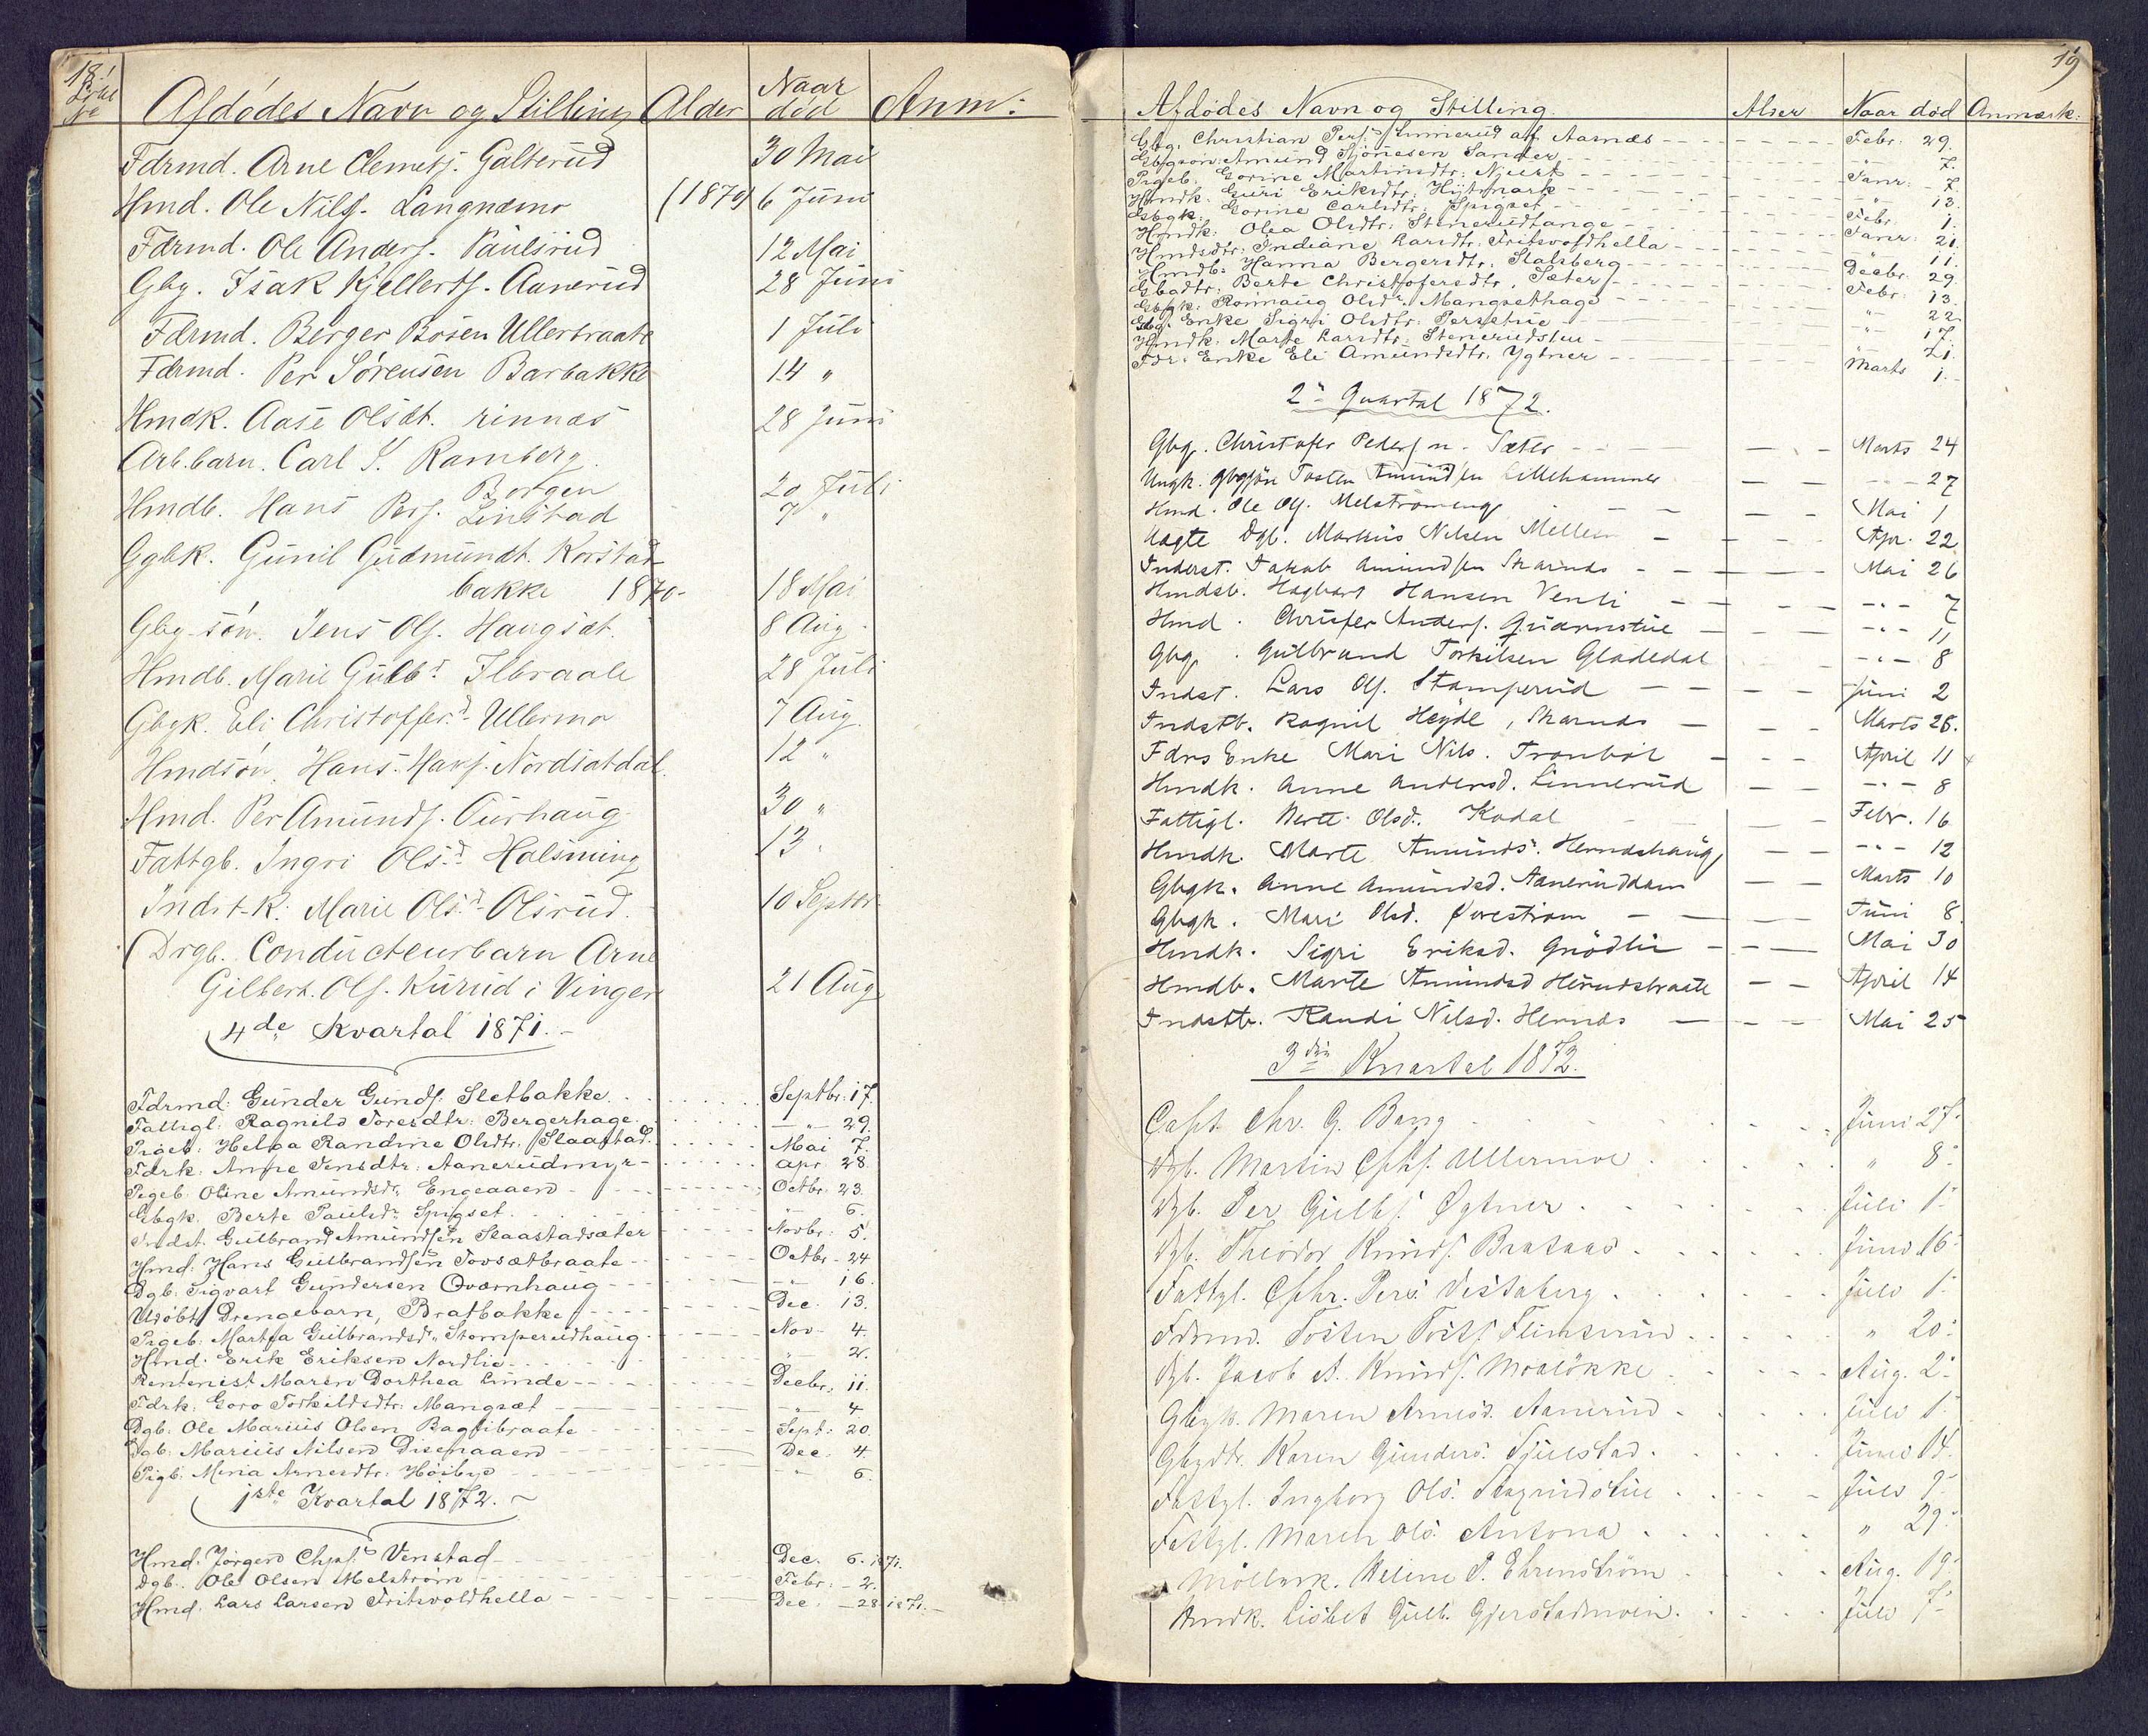 18
Afdødes Navn og Stilling Alder Naar død Anm:
Fdrmd. Arne Clemetsf. Galterud 30 Mai
Hmd. Ole Nilsf. Langnæmo (1870) 6 Juni
Fdrmd. Ole Andersf. Paulsrud 12 Mai
Gbg. Isak Kjellertsf. Aanerud 28 Juni
Fdrmd. Berger Bosen Ullerbraate 1 Juli
Fdrmd. Per Sørensen Barbakke 14 "
Hmdk. Aase Olsdt. rinnæs 28 Juni
Arb.barn. Carl S. Ramberg
Borgen 20 Juli
Hmdb. Hans Persf. Linstad 7 "
Ggbk. Gunil Gudmundt. Korstad
bakke 1870- 18 Mai
Gbg-søn. Jens Olsf. Haugsæt. 8 Aug.
Hmdb. Marie Gulbd. Ilbraate 28 Juli
Gbgk. Eli Christoffersd. Ullermo 7 Aug.
Hmdsøn. Hans Hansf. Nordsætdal. 12 "
Hmd. Per Amundsf. Ourhaug 30 "
Fattgb. Ingri Olsd. Halsming 13 "
Indst-k. Marie Olsd. Olsrud. 10 Septbr
Drgb. Conducteurbarn Arne
Gilbert. Olsf. Kurud i Vinger 21 Aug
4de Kvartal 1871.-
Fdrmd: Gunder Gundsf. Sletbakke Septbr: 17.
Fattigl: Ragnild Toresdtr: Bergerhage -"- 29.
Pigeb: Helga Randine Olsdtr: Slaastad. Mai 7.
Fdrk: Anne Jensdtr: Aanerudmyr- Apr 28.
Pigeb: Oline Amundsdr. Engeaaen Octbr. 23.
Gbgk. Berte Paulsdr. Spigset -"- 6.
Indst. Gulbrand Amundsen Slaastadsæter Novbr: 5.
Hmd: Hans Gulbrandsen Tovsætbraate Octbr - 24
Dgb: Sigvart Gundersen Qværnhaug -"- 16.
Udøbt Drengebarn, Bratbakke Dec. 13.
Pigeb: Martha Gulbrandsdr. Stomperudhaug Nov- 4.
Hmd: Erik Eriksen Nordlie -"- 2.
Rentenist Maren Dorthea Lunde Decbr. 11.
Fdrk: Goro Torkildsdtr: Mangsæt -"- 4
Dgb: Ole Marius Olsen Baglibraate Sept: 20.
Dgb: Marius Nilsen Disenaaen Dec. 4.
Pigb: Mina Arnesdtr: Høibye -"- 6.
1ste Kvartal 1872.
Hmd: Jørgen Chpsf. Venstad Dec. 6. 1871.
Dgb. Ole Olsen Melstrøm Febr: - 2.
Hmd. Lars Larsen Fritsvoldhella Dec. - 28 1871.-
19
Afdødes Navn og Stilling. Alder Naar død Anmærk:
Gbg. Christian Persf. Linnerud af Aarnæs Febr. 29.
Gbgsøn: Amund Sjønesen Sander -"- 7.
Pigeb. Gorine Martinsdtr: Njust Janr: - 7.
Hmdk: Guri Eriksdtr: Hytmark -"- 13.
Gbgk: Gorine Carlsdtr: Spigset Febr. 1.
Hmdk: Olea Olsdtr: Stenerudtange Janr: 21.
Hmdsdtr: Indiane Larsdtr: Fritsvoldhella -"- 11.
Hmdb: Hanna Bergersdtr: Slalsberg Decbr. 29.
Gbgdtr: Berte Christofersdtr. Sæter Febr. 13.
Gbgk: Rønnaug Olsdr. Mangsethage -"- 22.
Gbg. Enke Sigri Olsdtr: Persetrie -"- 17.
Hmdk: Marte Larsdtr: Stenerudstu -"- 21.
Fdr. Enke Eli Amundsdtr. Ygtner Marts 1.
2. Quartal 1872.
Gbg. Christofer Pedersen. Sæter Marts 24
Ungk. Gbgsøn Tosten Amundsen Lillehammer -"- 27
Hmd. Ole Olsf. Melstrømeng Mai 1
Uægte Dgb. Markus Nilsen Mellem Apr. 22
Inderst. Jakob Amundsen Skarnæs Mai 26
Hmdsb. Hagbart Hansen Venli -"- 7
Hmd. Christfer Andersf. Quærnstue -"- 11
Gbg. Gulbrand Torkilsen Gladedal -"- 8
Indst. Lars Olsf. Stomperud Juni 2
Indstb. Ragnil Heyde, Skarnæs Marts 28.
Fdrs Enke Mari Nils. Tronbøl April 11
Hmdk. Anne Andersd. Linnerud -"- 8
Fattigl. Berte Olsd. Kodal Febr. 16
Hmdk. Marte Amunds. Herndshaug -"- 12
Gbgk. Anne Amundsd. Aaneruddam Marts 10
Gbgk. Mari Olsd. Øvestrøm Juni 8
Hmdk. Sigri Eriksd. Grødlie Mai 30
Hmdb. Marte Amundsd Hérudsbraate April 14
Indstb. Randi Nilsd. Hernæs Mai 25
3die Kvartal 1872.
Capt. Chr. G. Bang Juni 27.
Dgb. Martin Chpsf. Ullermoe " 8.
Dgb. Per Gulbsf. Øgtner Juli 1.
Dgb. Theodor Knudsf. Brataas Juni 16.
Fattgl. Chphr. Pers. Vestaberg Juli 1.
Fdrmd. Tosten Tostsf. Flintsrud " 20.
Dgb. Jacob A. Knudsf. Moeløkke Aug. 2.
Gbgk. Maren Arnesd. Aanerud Juli 1.
Gbgdtr. Karen Gunders. Sjulstad Juni 14.
Fattgl. Ingborg Ols. Aagrudstue Juli 9.
Fattgl. Maren Ols. Antona " 29.
Møllersk. Heline P. Ehrenstrøm Aug. 19.
Hmdk. Lisbet Gulb. Gjerstadmoen Juli 7.